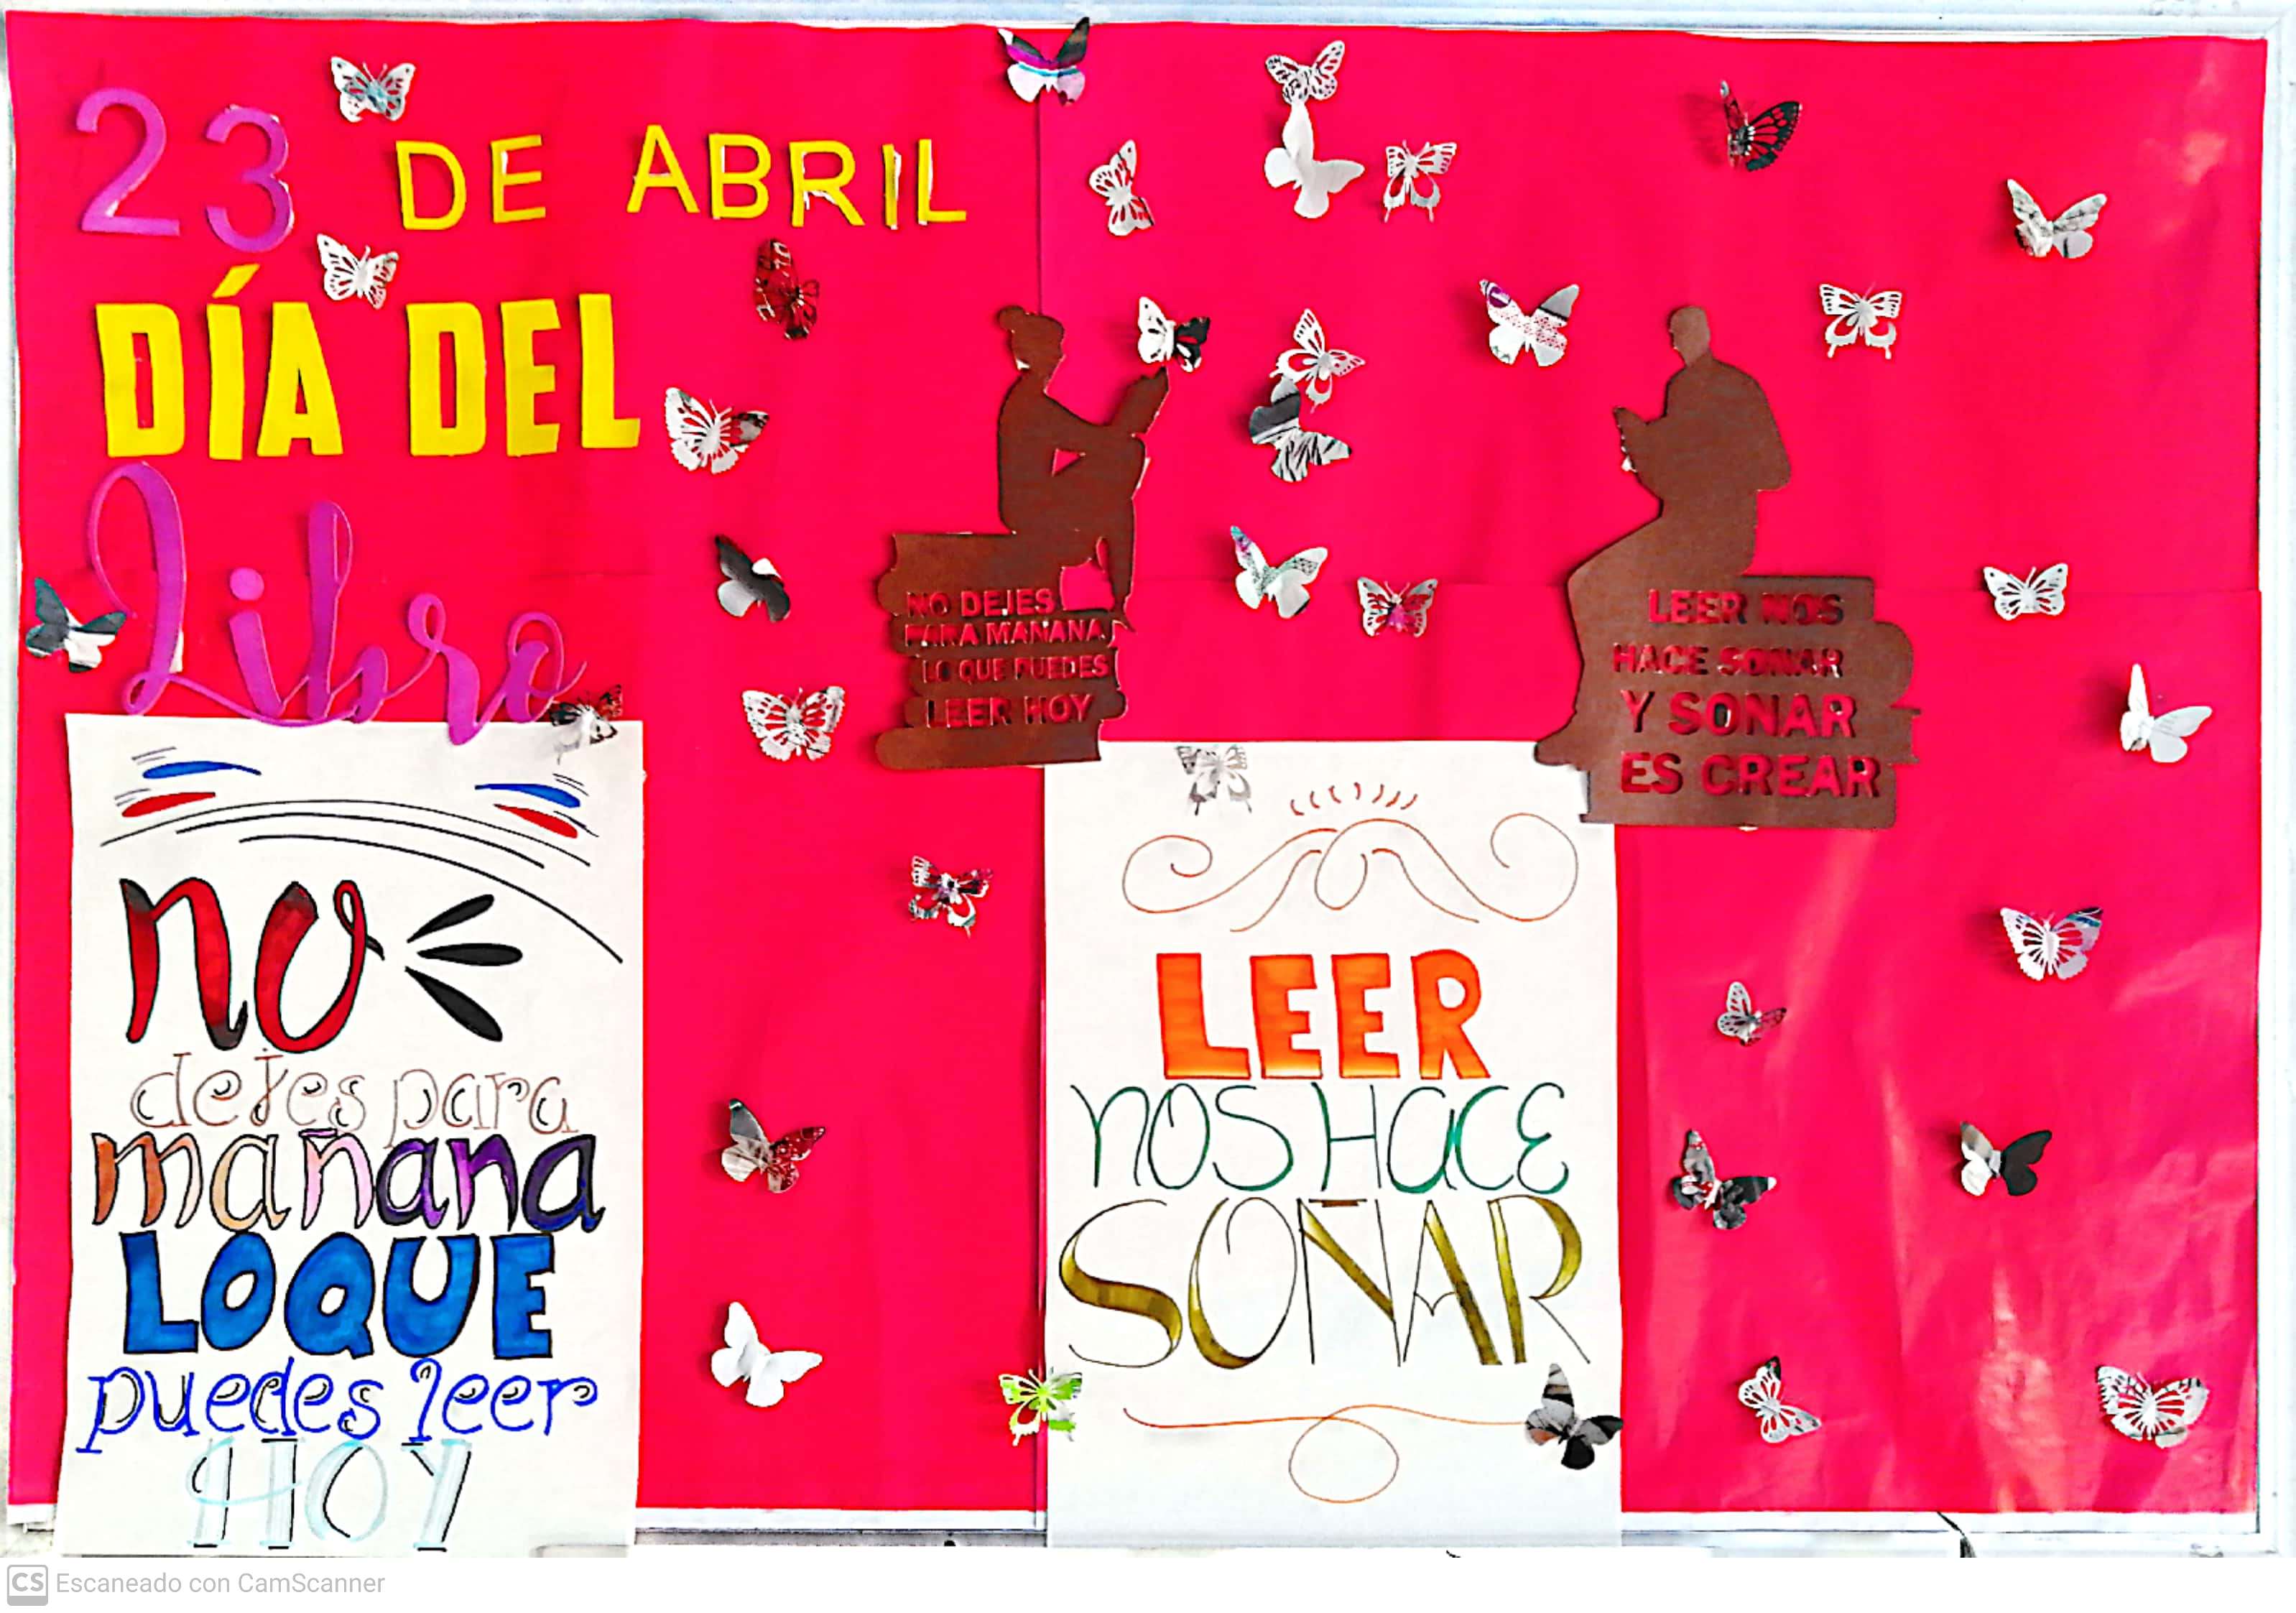 23 DE ABRIL
DÍA DEL
Libro
NO DEJES
PARA MAÑANA
LO QUE PUEDES
LEER HOY
LEER NOS
HACE SOÑAR
Y SOÑAR
ES CREAR
no
dejes para
mañana
LO QUE
puedes leer
HOY
LEER
nos Hace
SOÑAR
CS Escaneado con CamScanner